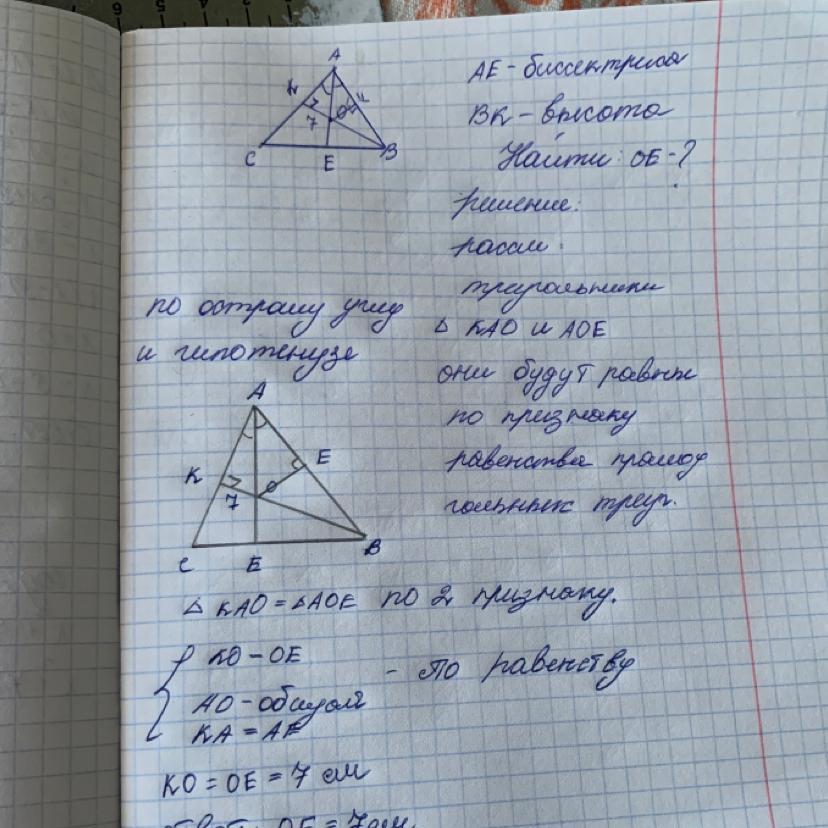 A
K
7
O
C
E
B
AE - биссектриса
BK - высота
Найти: OE - ?
решение:
рассм.
треугольники
△ KAO и AOE
они будут равны
по признаку
равенства прямоу
гольных треуг.
по острому углу
и гипотенузе
A
K
E
7
O
C
E
B
△ KAO = △AOE по 2 признаку.
KO - OE
AO - общая
KA = AE
- по равенству
KO = OE = 7 см
OE = 7см